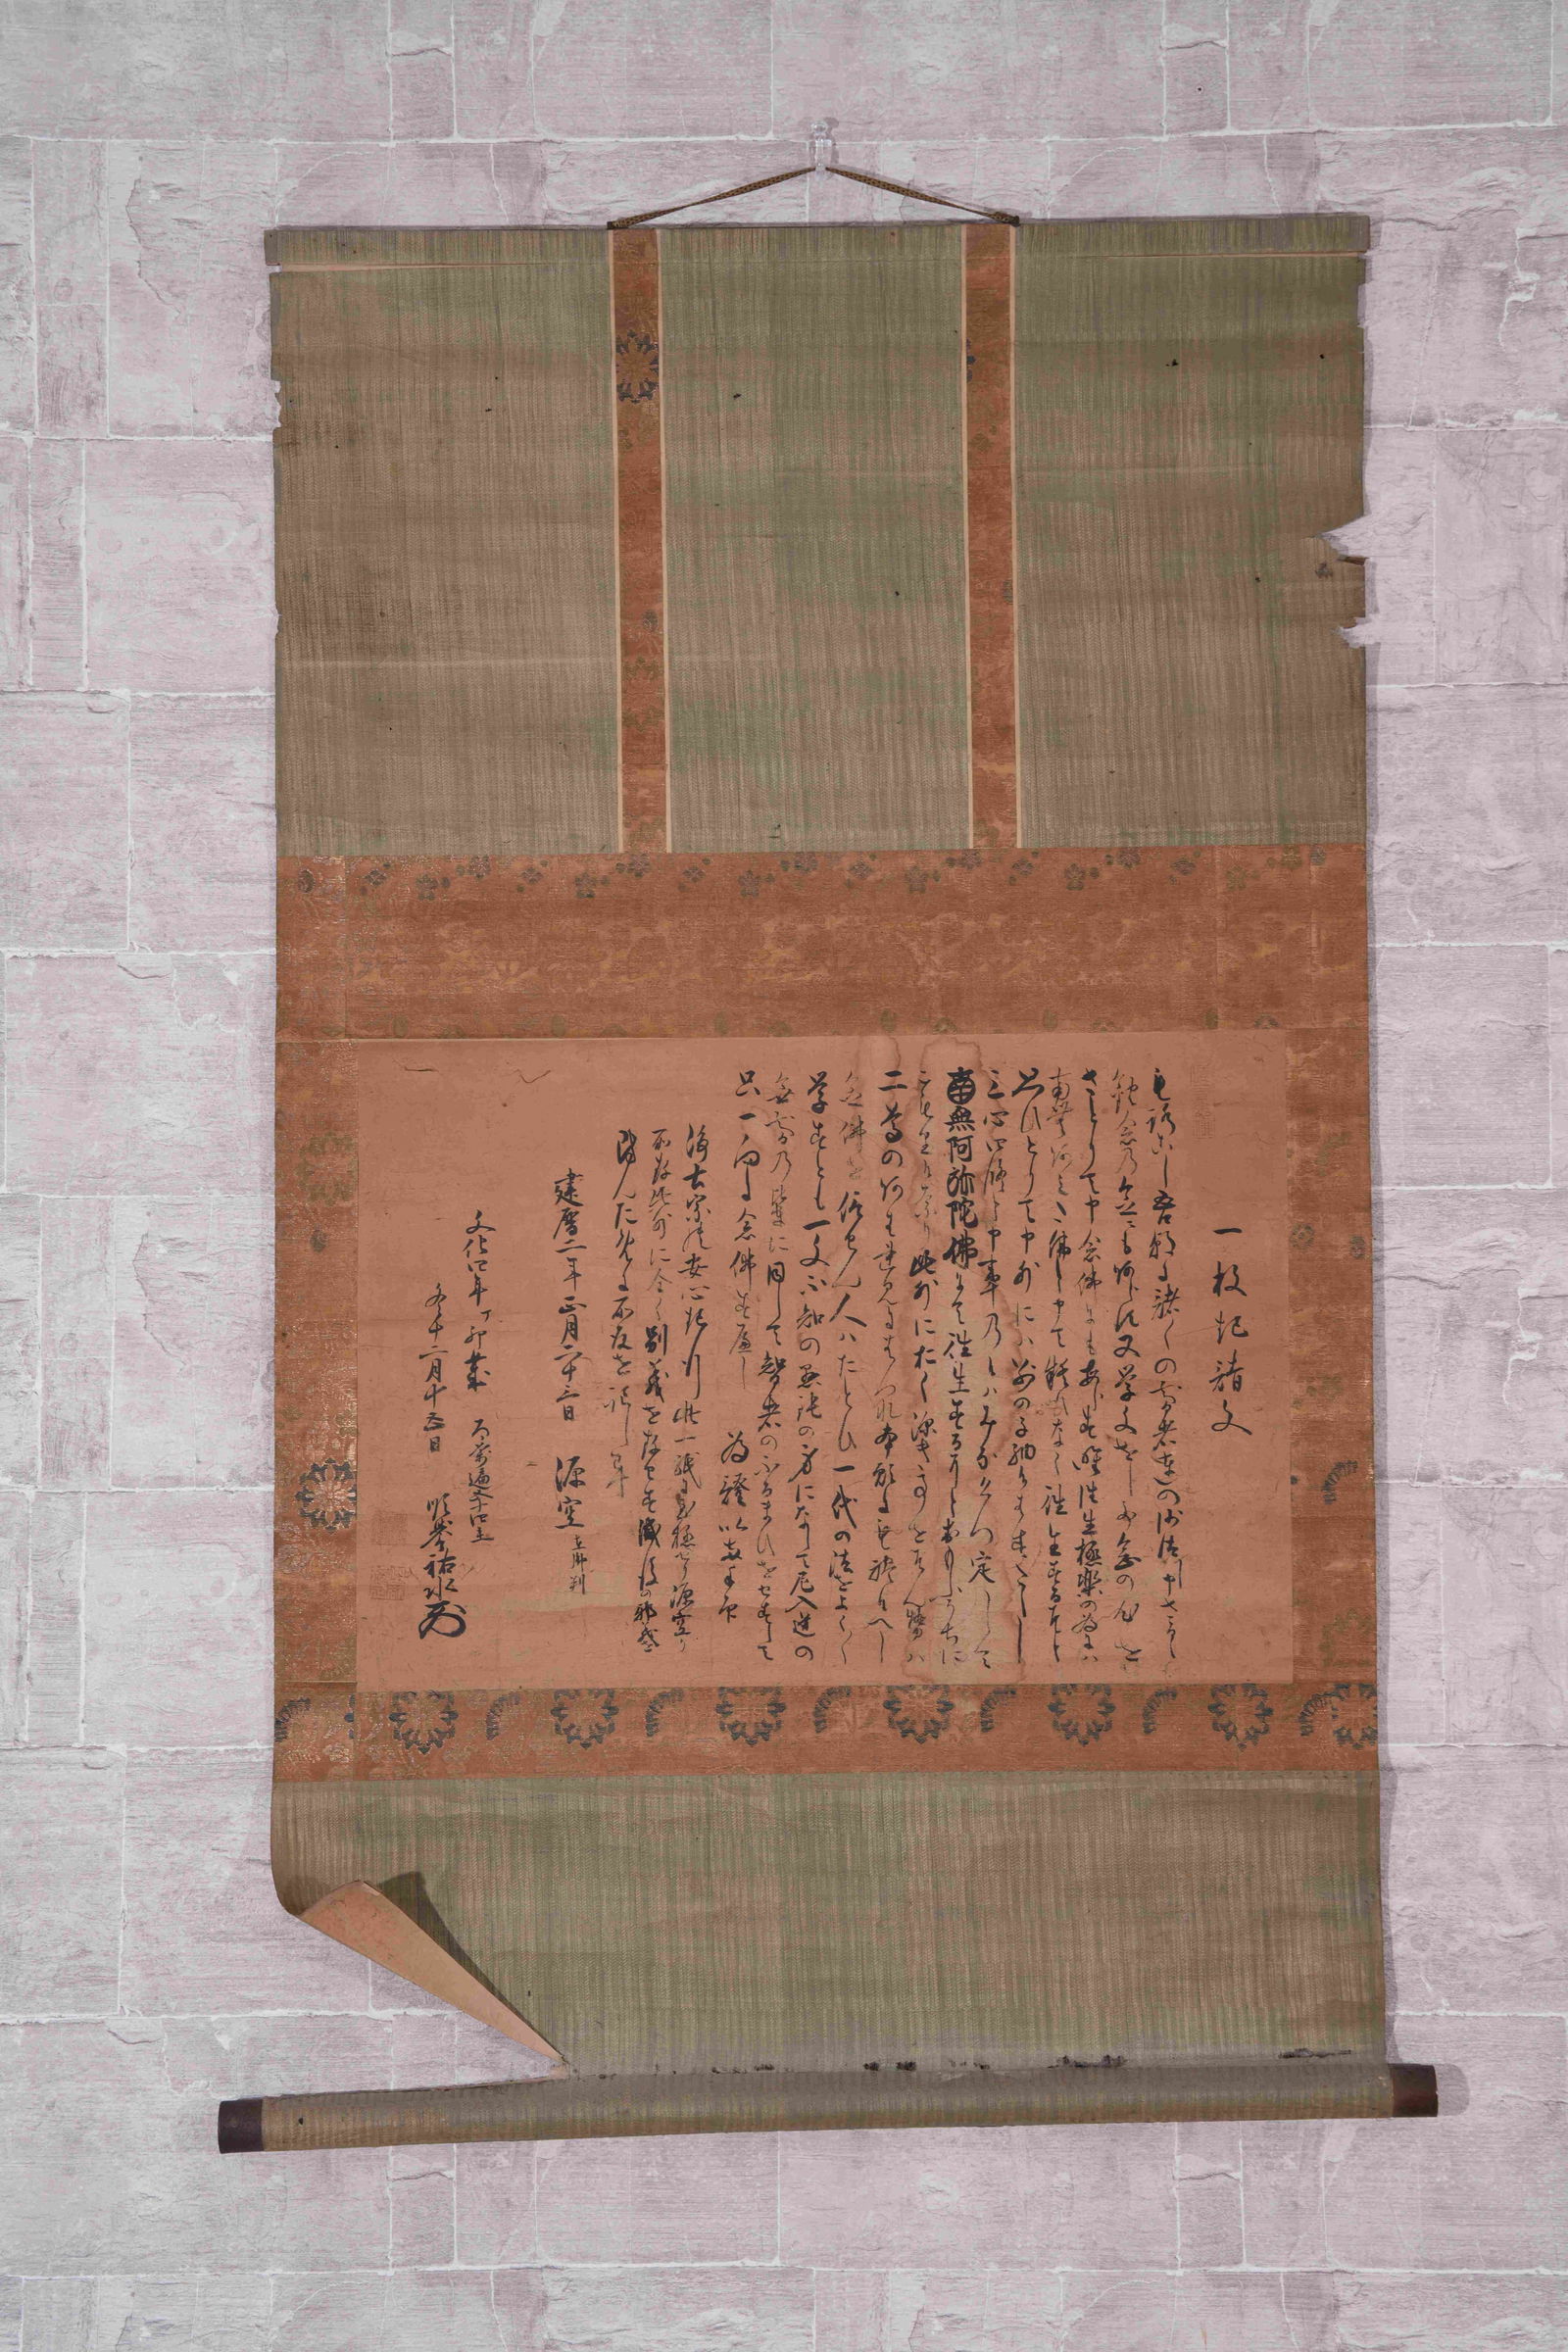 一枚起請文
もろこし吾朝に諸〻の智者達の沙汰し申さるゝ
観念の念にも阿らす又学文をして念の心を
さとりて申念佛にもあらす唯往生極楽の為には
南無阿ミた佛と申て疑ひなく往生するそと
思ひとりて申外にハ別の子細候はすたゝし
三心四修と申事の候ハみなけつ定して
南無阿弥陀佛にて往生するそとおもふうちに
こもり候なり此外におく深き事をそんせハ
二尊の阿はれみにはつれ本願にもれ候へし
念佛を信せん人ハたとひ一代の法をよく〳〵
学すとも一文不知の愚鈍の身になして尼入道の
無智の輩に同して智者のふるまひをせすして
只一向に念佛すへし 為證以両手印
浄土宗の安心起行此一紙に至極せり源空か
所存此外に全く別義を存せす滅後の邪義を
防んために所存を記し畢
建暦二年正月二十三日 源空 在御判
文化四年丁卯歳
冬十二月十五日 順誉祐水